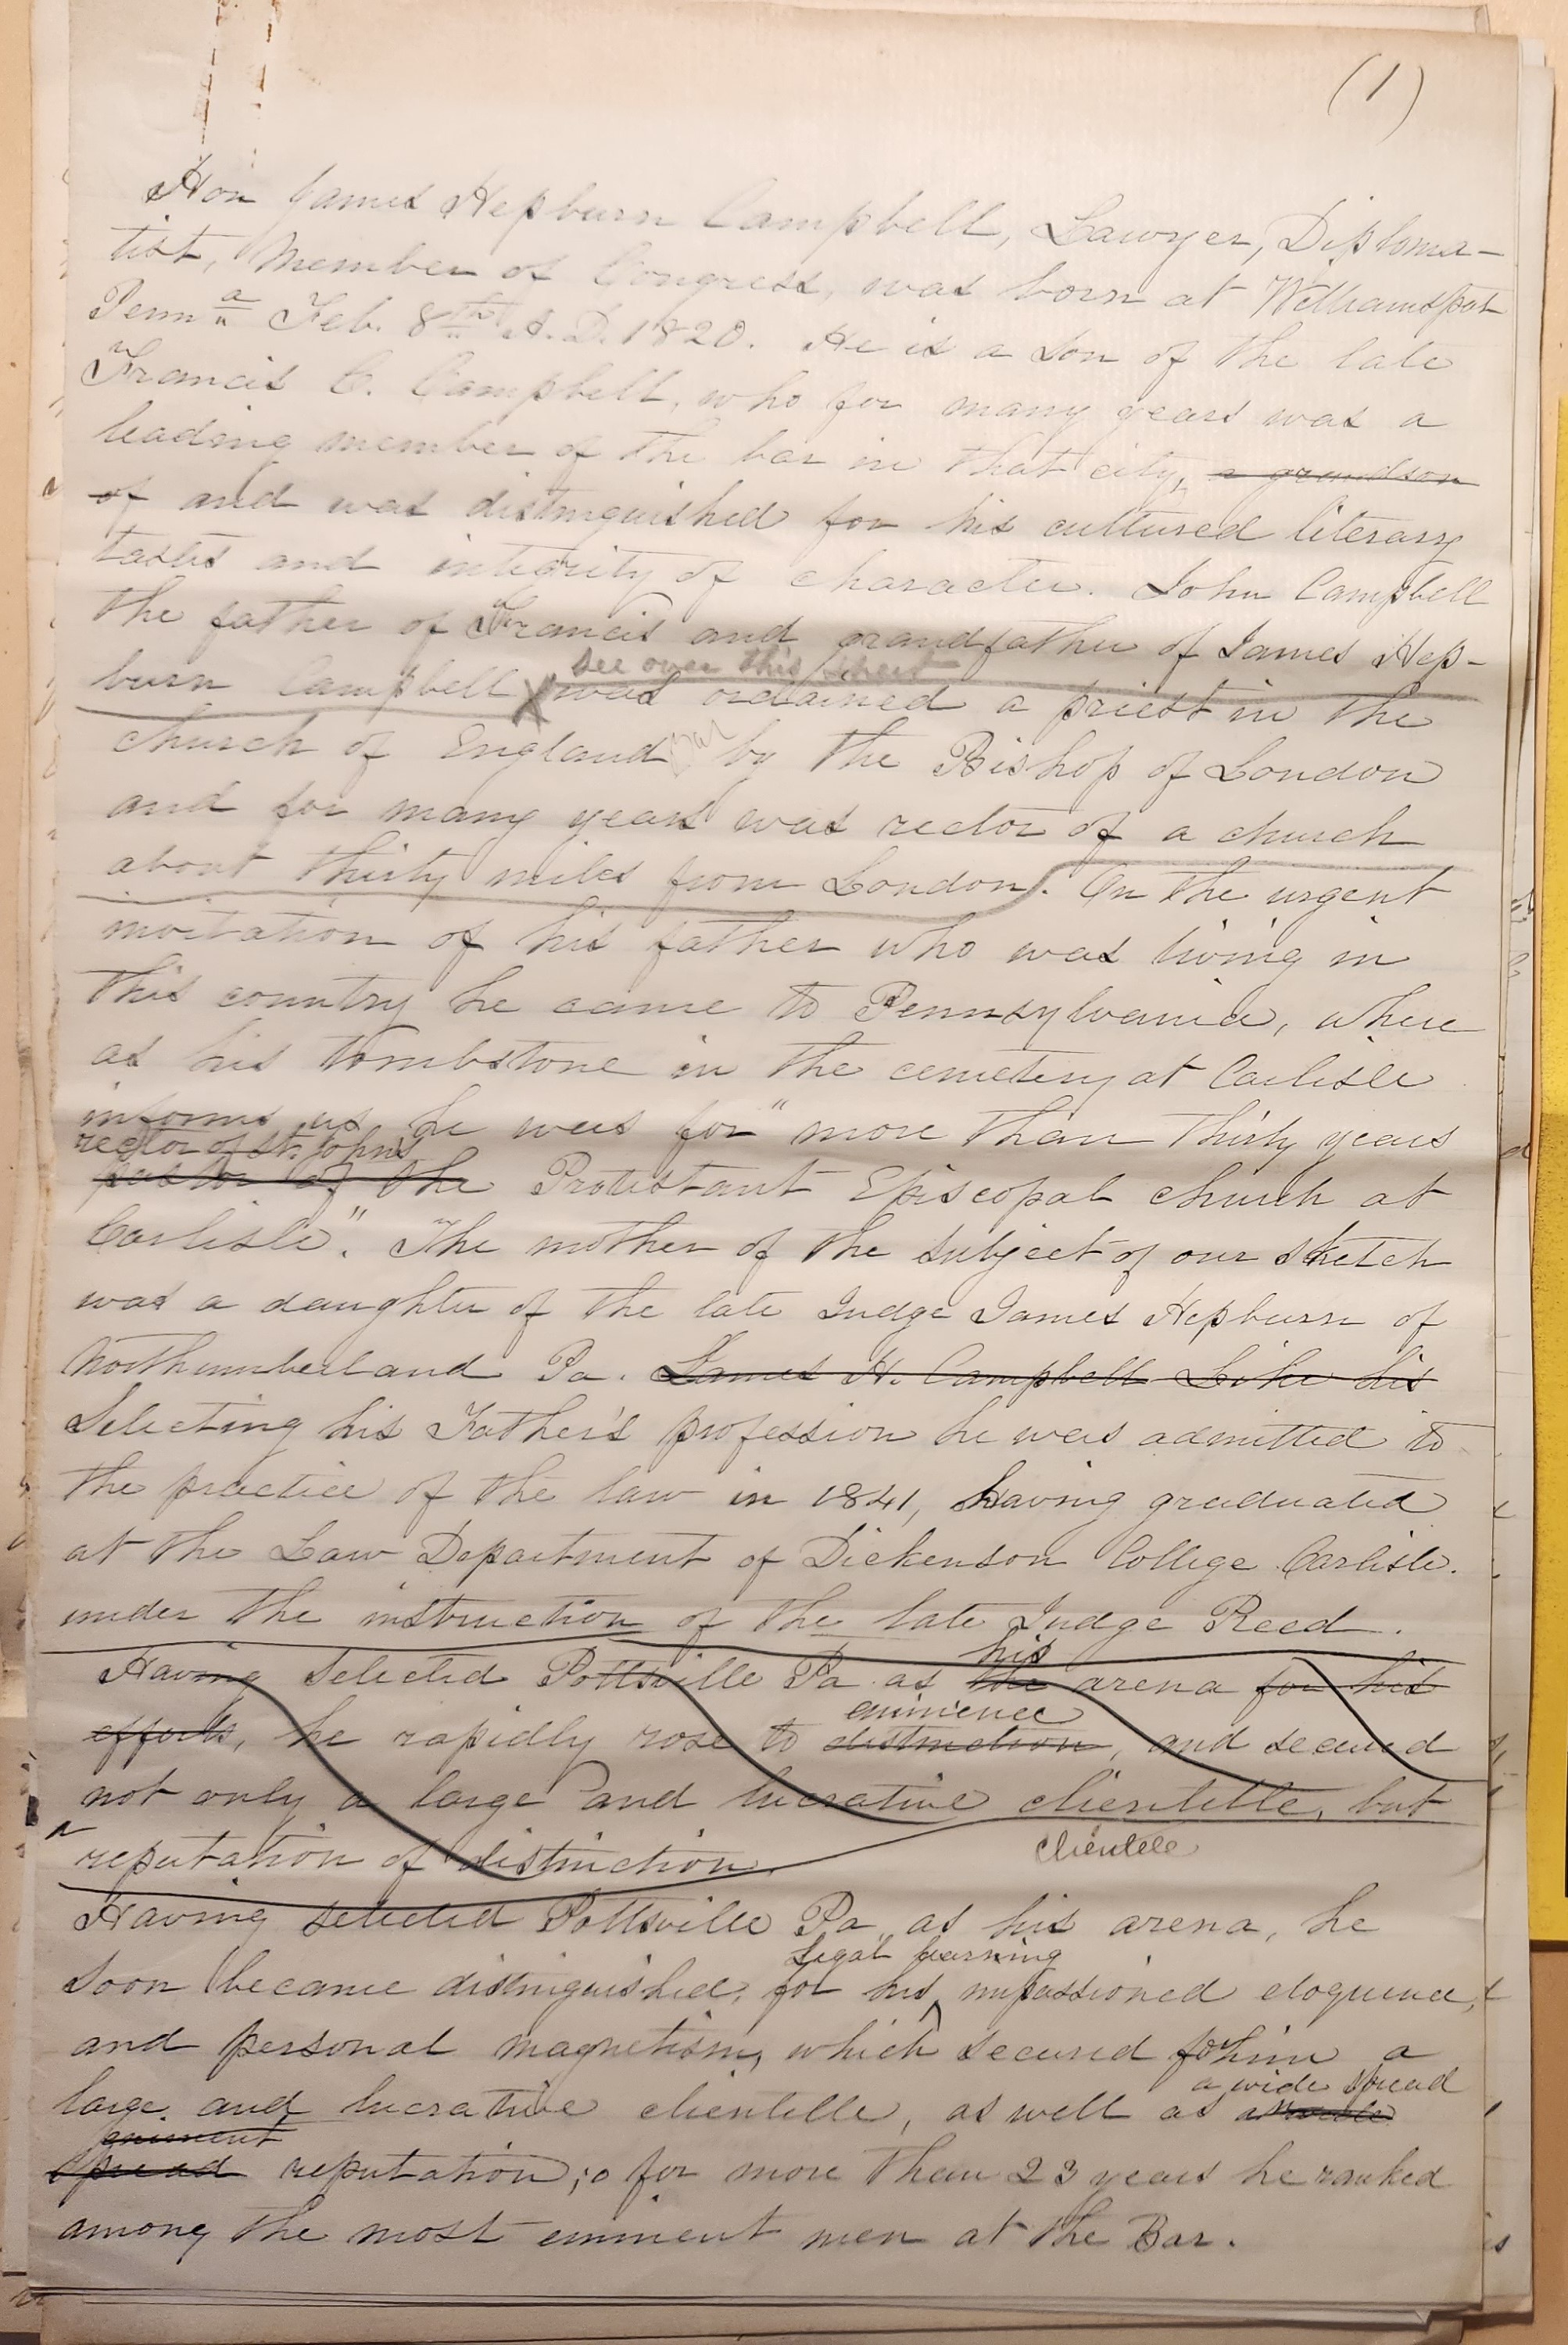 (1)
Hon James Hepburn Campbell, Lawyer, Diploma-
tist, Member of Congress, was born at Williamsport
Penn a Feb. 8th A.D. 1820. He is a son of the late
Francis C. Campbell, who for many years was a
leading member of the bar in that city, a grandson
of and was distinguished for his cultured literary
tastes and integrity of character. John Campbell
the father of Francis and grandfather of James Hep-
see over this sheet
burn Campbell X was ordained a priest in the
church of England by the Bishop of London
and for many years was rector of a church
about thirty miles from London. On the urgent
invitation of his father who was living in
this country he came to Pennsylvania, where
as his tombstone in the cemetery at Carlisle
informs us he was for "more than thirty years
rector of St. John's
pastor of the Protestant Episcopal church at
Carlisle". The mother of the subject of our sketch
was a daughter of the late Judge James Hepburn of
Northumberland Pa. James H. Campbell Like his
Selecting his Father's profession he was admitted to
the practice of the law in 1841, having graduated
at the Law Department of Dickenson College Carlisle.
under the instruction of the late Judge Reed.
his
Having selected Pottsville Pa as the arena for his
eminence
efforts, he rapidly rose to distinction, and secured
not only a large and lucrative clientelle, but
a reputation of distinction.
clientele
Having selected Pottsville Pa as his arena, he
legal learning
soon became distinguished, for his ^ impassioned eloquence,
and personal magnetism, which secured for him a
a wide spread
large and lucrative clientelle, as well as a wide
eminent
spread reputation; for more than 23 years he ranked
among the most eminent men at the Bar.